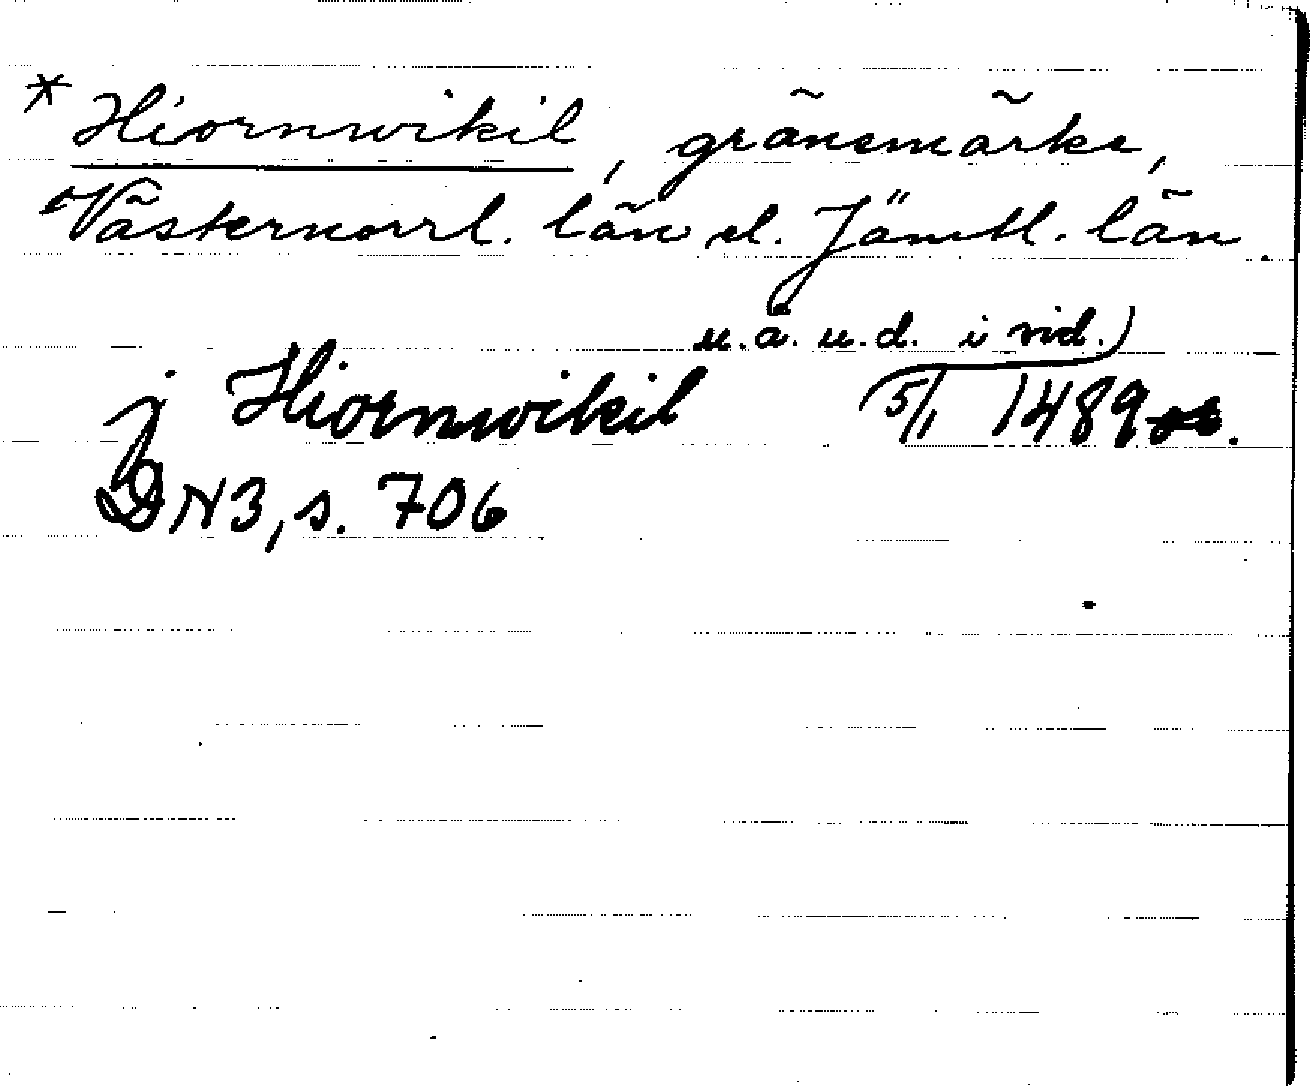 * Hiornwikil, gränsmärke,
Västernorrl. län el. Jämtl. län.
u.å. u.d. i vid.)
j Hiornwikil 5/1 1489
DN 3, s. 706